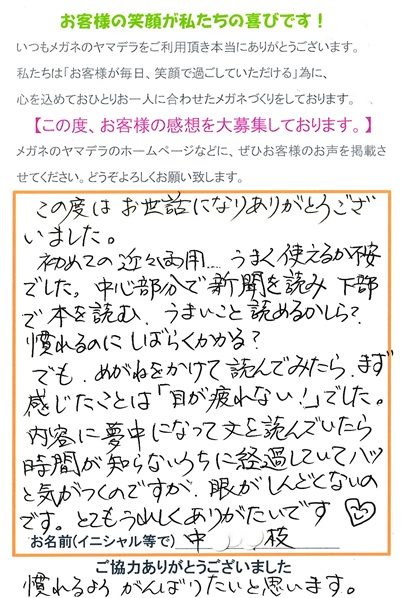 お客様の笑顔が私たちの喜びです！
いつもメガネのヤマデラをご利用頂き本当にありがとうございます。
私たちは「お客様が毎日、笑顔で過ごしていただける」為に、
心を込めておひとりお一人に合わせたメガネづくりをしております。
【この度、お客様の感想を大募集しております。】
メガネのヤマデラのホームページなどに、ぜひお客様のお声を掲載さ
せてください。どうぞよろしくお願い致します。
この度はお世話になりありがとうござ
いました。
初めての近々両用… うまく使えるか不安
でした。中心部分で新聞を読み 下部
で本を読む、うまいこと読めるかしら？
慣れるのにしばらくかかる？
でも、めがねをかけて読んでみたら、まず
感じたことは「目が疲れない！」でした。
内容に夢中になって文を読んでいたら
時間が知らないうちに経過していてハッ
と気がつくのですが、眼がしんどくないの
です。とてもうれしくありがたいです♡
お名前(イニシャル等で) 中 枝
ご協力ありがとうございました
慣れるよう がんばりたいと思います。